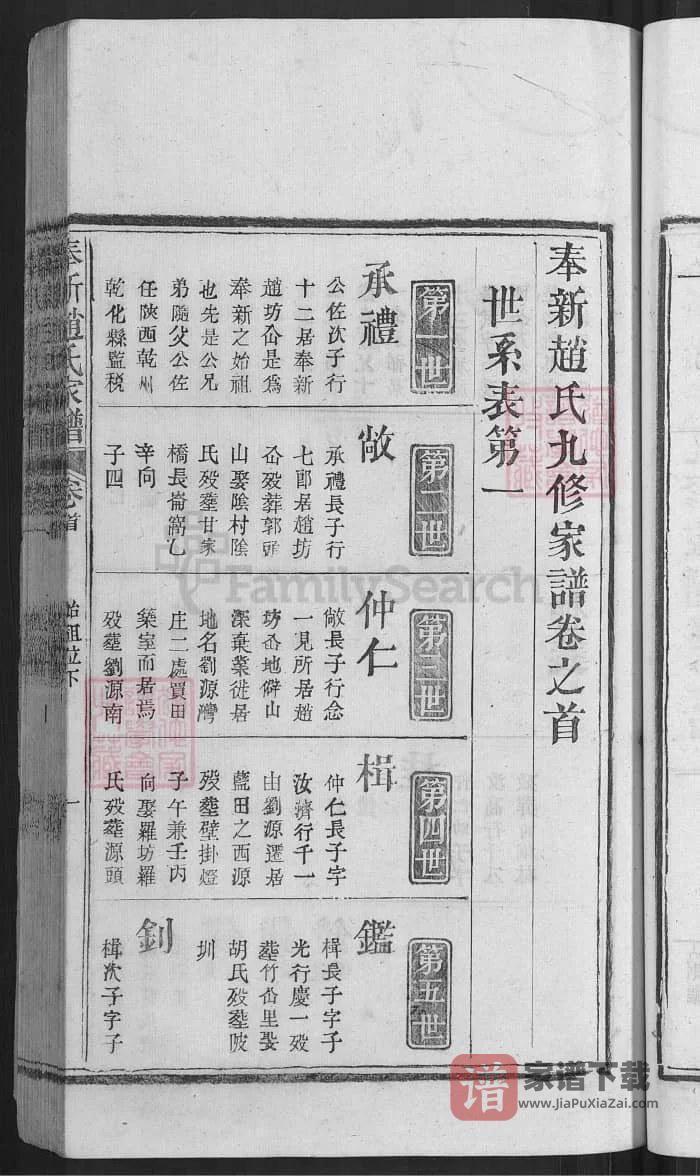 奉新趙氏九修家譜卷之首
世系表第一
第一世
承禮
公佐次子行
十二居奉新
趙坊仚是爲
奉新之始祖
也先是公兄
弟隨父公佐
任陝西乾州
乾化縣監税
第二世
敞
承禮長子行
七郎居趙坊
仚殁葬郭頭
山娶陰村陰
氏殁塟甘家
橋長崙窩乙
辛向
子四
第三世
仲仁
敞長子行念
一見所居趙
坊仚地僻山
深棄業徙居
地名劉源灣
庄二處買田
築室而居焉
殁塟劉源南
第四世
楫
仲仁長子字
汝濟行千一
由劉源遷居
藍田之西源
殁塟壁掛燈
子午兼壬丙
向娶羅坊羅
氏殁塟源頭
第五世
鑑
楫長子字子
光行慶一殁
塟竹仚里娶
胡氏殁塟陂
圳
釗
楫次子字子
奉新趙氏家譜
卷首
始祖位下
一
FamilySearch
譜
家谱下载
www.JiaPuXiaZai.com